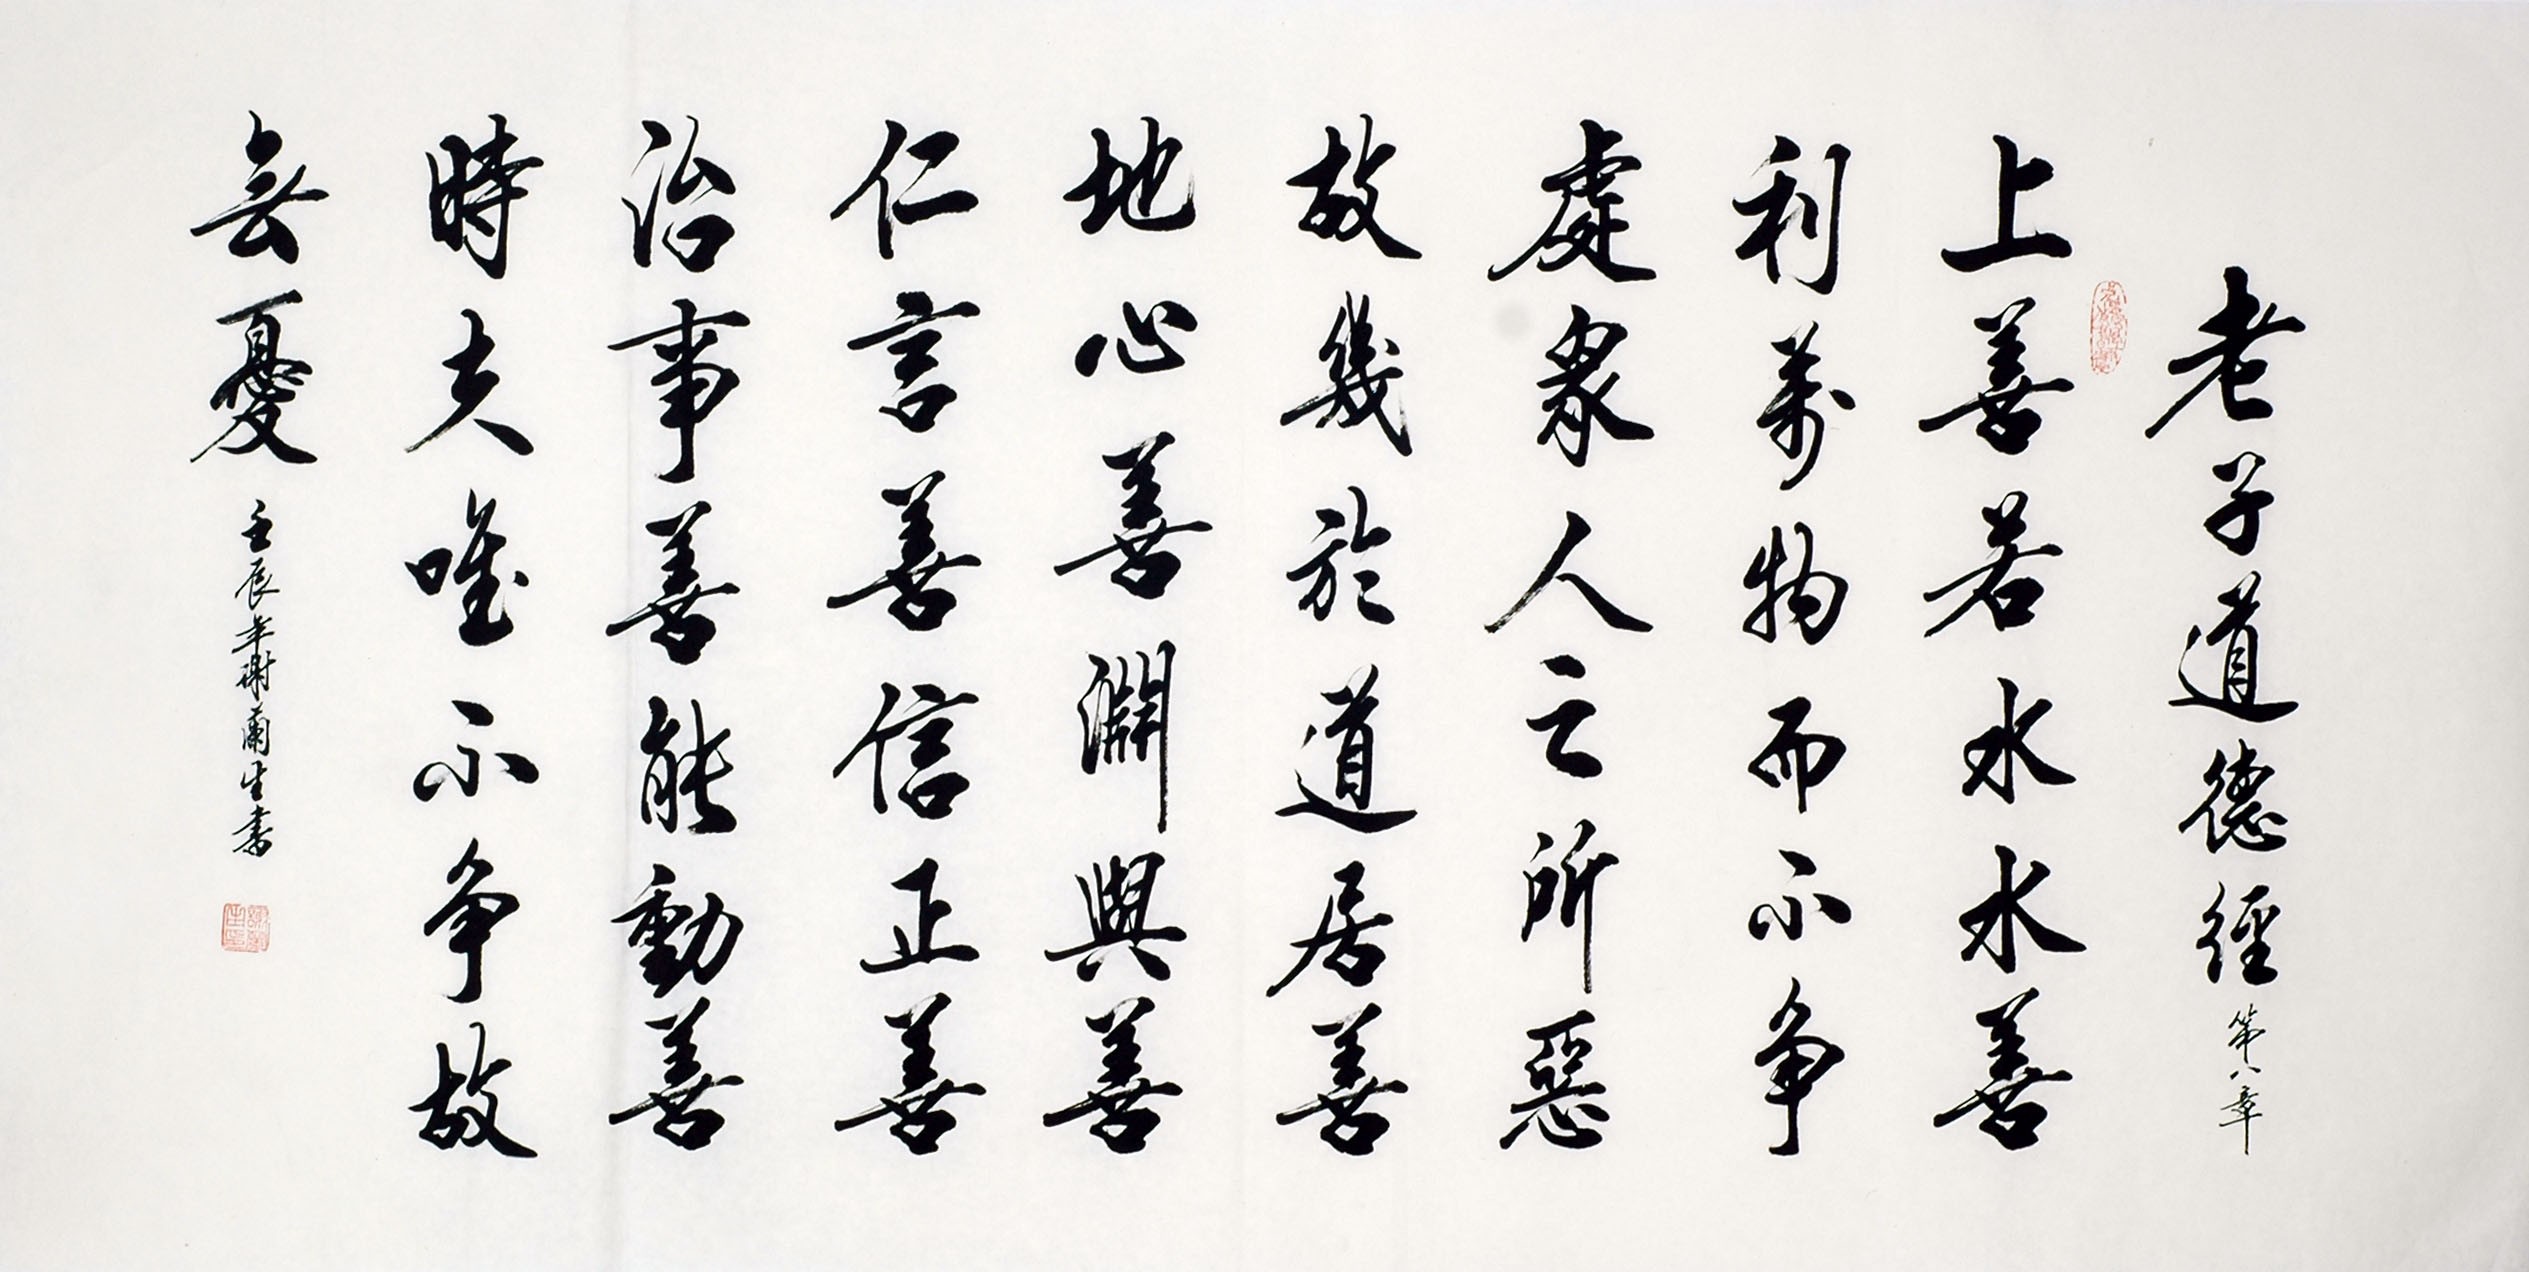 老子道德經第八章
上善若水水善
利萬物而不争
處衆人之所惡
故幾於道居善
地心善淵與善
仁言善信正善
治事善能動善
時夫唯不争故
無憂
壬辰年謝蘭生書